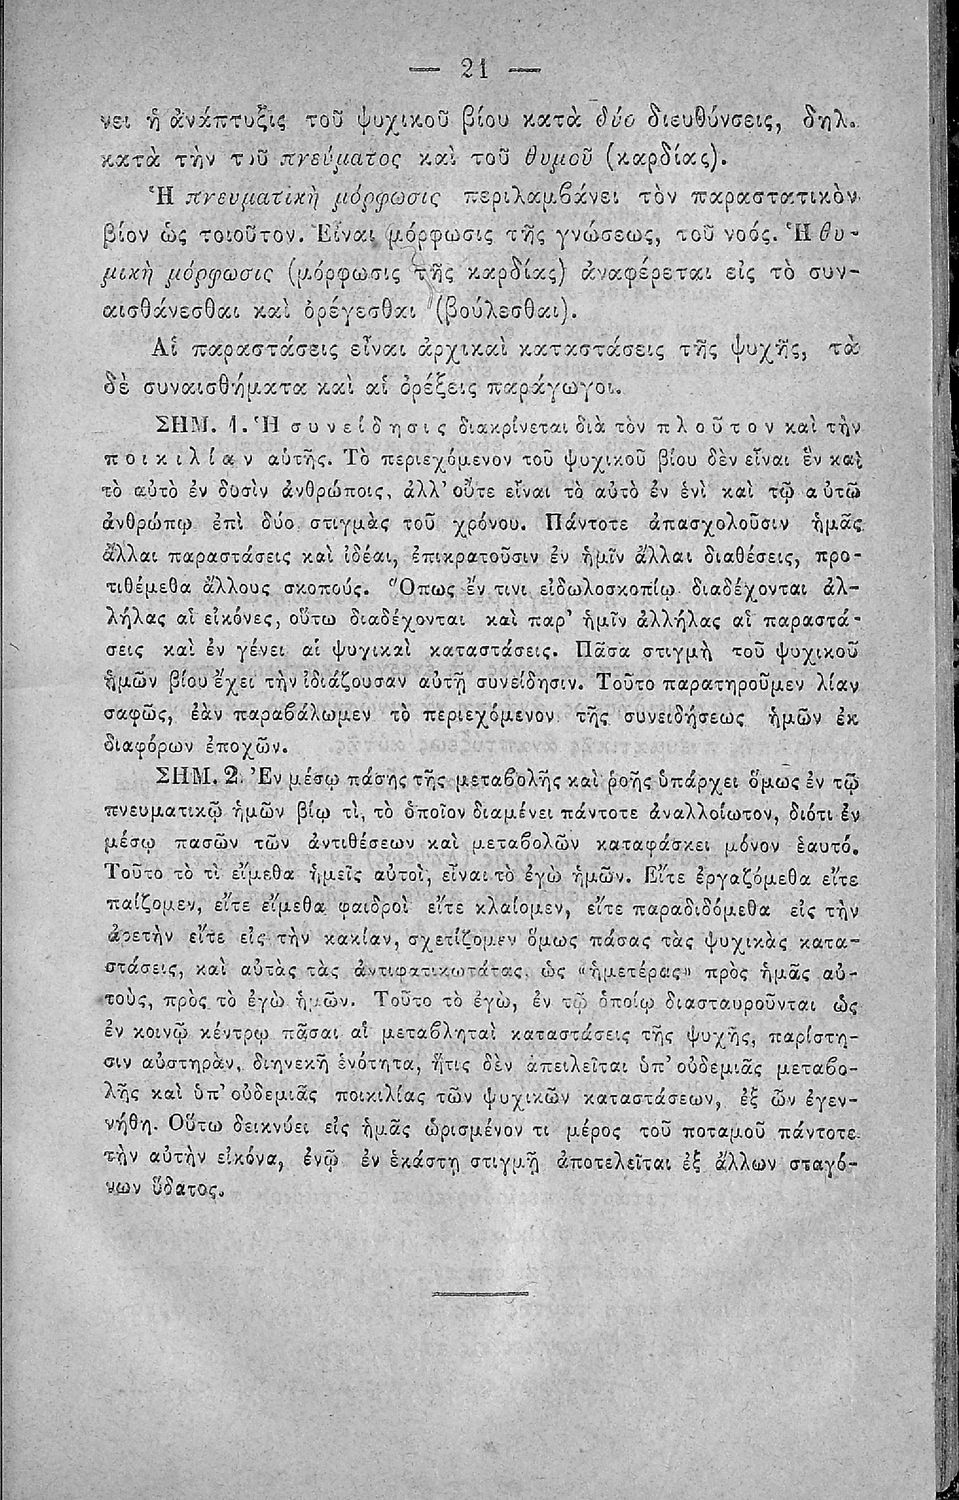 — 21 —
νει ἡ ἀνάπτυξις τοῦ ψυχικοῦ βίου κατὰ δύο διευθύνσεις, δηλ.
κατὰ τὴν τοῦ πνεύματος καὶ τοῦ θυμοῦ (καρδίας).
Ἡ πνευματικὴ μόρφωσις περιλαμβάνει τὸν παραστατικὸν
βίον ὡς τοιοῦτον. Εἶναι μόρφωσις τῆς γνώσεως, τοῦ νοός. Ἡ θυ-
μικὴ μόρφωσις (μόρφωσις τῆς καρδίας) ἀναφέρεται εἰς τὸ συν-
αισθάνεσθαι καὶ ὀρέγεσθαι (βούλεσθαι).
Αἱ παραστάσεις εἶναι ἀρχικαὶ καταστάσεις τῆς ψυχῆς, τὰ
δὲ συναισθήματα καὶ αἱ ὀρέξεις παράγωγοι.
ΣΗΜ. 1. Ἡ συνείδησις διακρίνεται διὰ τὸν πλοῦτον καὶ τὴν
ποικιλίαν αὐτῆς. Τὸ περιεχόμενον τοῦ ψυχικοῦ βίου δὲν εἶναι ἓν καὶ
τὸ αὐτὸ ἐν δυσὶν ἀνθρώποις, ἀλλ' οὔτε εἶναι τὸ αὐτὸ ἐν ἑνὶ καὶ τῷ αὐτῷ
ἀνθρώπῳ ἐπὶ δύο στιγμὰς τοῦ χρόνου. Πάντοτε ἀπασχολοῦσιν ἡμᾶς
ἄλλαι παραστάσεις καὶ ἰδέαι, ἐπικρατοῦσιν ἐν ἡμῖν ἄλλαι διαθέσεις, προ-
τιθέμεθα ἄλλους σκοπούς. Ὅπως ἔν τινι εἰδωλοσκοπίῳ διαδέχονται ἀλ-
λήλας αἱ εἰκόνες, οὕτω διαδέχονται καὶ παρ' ἡμῖν ἀλλήλας αἱ παραστά-
σεις καὶ ἐν γένει αἱ ψυχικαὶ καταστάσεις. Πᾶσα στιγμὴ τοῦ ψυχικοῦ
ἡμῶν βίου ἔχει τὴν ἰδιάζουσαν αὐτῇ συνείδησιν. Τοῦτο παρατηροῦμεν λίαν
σαφῶς, ἐὰν παραβάλωμεν τὸ περιεχόμενον τῆς συνειδήσεως ἡμῶν ἐκ
διαφόρων ἐποχῶν.
ΣΗΜ. 2. Ἐν μέσῳ πάσης τῆς μεταβολῆς καὶ ῥοῆς ὑπάρχει ὅμως ἐν τῷ
πνευματικῷ ἡμῶν βίῳ τὶ, τὸ ὁποῖον διαμένει πάντοτε ἀναλλοίωτον, διότι ἐν
μέσῳ πασῶν τῶν ἀντιθέσεων καὶ μεταβολῶν καταφάσκει μόνον ἑαυτό.
Τοῦτο τὸ τὶ εἴμεθα ἡμεῖς αὐτοί, εἶναι τὸ ἐγὼ ἡμῶν. Εἴτε ἐργαζόμεθα εἴτε
παίζομεν, εἴτε εἴμεθα φαιδροὶ εἴτε κλαίομεν, εἴτε παραδιδόμεθα εἰς τὴν
ἀρετὴν εἴτε εἰς τὴν κακίαν, σχετίζομεν ὅμως πάσας τὰς ψυχικὰς κατα-
στάσεις, καὶ αὐτὰς τὰς ἀντιφατικωτάτας, ὡς «ἡμετέρας» πρὸς ἡμᾶς αὐ-
τούς, πρὸς τὸ ἐγὼ ἡμῶν. Τοῦτο τὸ ἐγώ, ἐν τῷ ὁποίῳ διασταυροῦνται ὡς
ἐν κοινῷ κέντρῳ πᾶσαι αἱ μεταβληταὶ καταστάσεις τῆς ψυχῆς, παρίστη-
σιν αὐστηρὰν, διηνεκῆ ἑνότητα, ἥτις δὲν ἀπειλεῖται ὑπ' οὐδεμιᾶς μεταβο-
λῆς καὶ ὑπ' οὐδεμιᾶς ποικιλίας τῶν ψυχικῶν καταστάσεων, ἐξ ὧν ἐγεν-
νήθη. Οὕτω δεικνύει εἰς ἡμᾶς ὡρισμένον τι μέρος τοῦ ποταμοῦ πάντοτε
τὴν αὐτὴν εἰκόνα, ἐνῷ ἐν ἑκάστῃ στιγμῇ ἀποτελεῖται ἐξ ἄλλων σταγό-
νων ὕδατος.